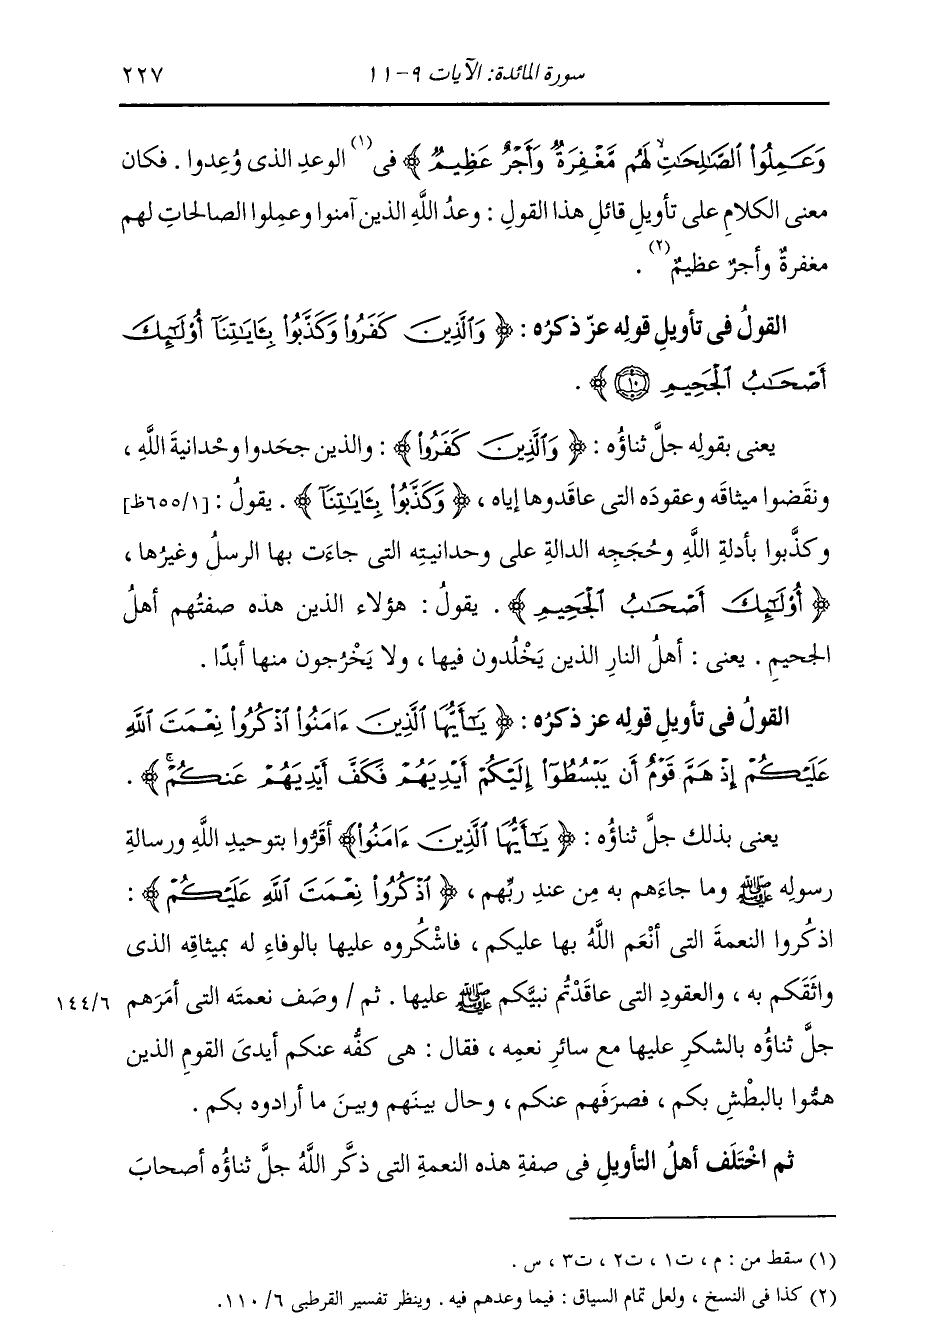 سورة المائدة: الآيات ٩-١١ ٢٢٧
وَعَمِلُوا۟ ٱلصَّـٰلِحَـٰتِ لَهُم مَّغْفِرَةٌ وَأَجْرٌ عَظِيمٌ ﴾ فى(١) الوعدِ الذى وُعِدوا . فكان
معنى الكلامِ على تأويلِ قائلِ هذا القولِ : وعدُ اللَّهِ الذين آمنوا وعمِلوا الصالحاتِ لهم
مغفرةٌ وأجرٌ عظيمٌ(٢) .
القولُ فى تأويلِ قولِه عزّ ذكرُه : ﴿ وَٱلَّذِينَ كَفَرُوا۟ وَكَذَّبُوا۟ بِـَٔايَـٰتِنَآ أُو۟لَـٰٓئِكَ
أَصْحَـٰبُ ٱلْجَحِيمِ ⑩ ﴾ .
يعنى بقولِه جلَّ ثناؤُه : ﴿ وَٱلَّذِينَ كَفَرُوا۟ ﴾ : والذين جحَدوا وحْدانيةَ اللَّهِ ،
ونقَضوا ميثاقَه وعقودَه التى عاقَدوها إياه ، ﴿ وَكَذَّبُوا۟ بِـَٔايَـٰتِنَآ ﴾ . يقولُ : [٦٥٥/١ظ]
وكذَّبوا بأدلةِ اللَّهِ وحُجَجِه الدالةِ على وحدانيتِه التى جاءَت بها الرسلُ وغيرُها ،
﴿ أُو۟لَـٰٓئِكَ أَصْحَـٰبُ ٱلْجَحِيمِ ﴾ . يقولُ : هؤلاء الذين هذه صفتُهم أهلُ
الجحيمِ . يعنى : أهلُ النارِ الذين يَخْلُدون فيها ، ولا يَخْرُجون منها أبدًا .
القولُ فى تأويلِ قولِه عز ذكرُه : ﴿ يَـٰٓأَيُّهَا ٱلَّذِينَ ءَامَنُوا۟ ٱذْكُرُوا۟ نِعْمَتَ ٱللَّهِ
عَلَيْكُمْ إِذْ هَمَّ قَوْمٌ أَن يَبْسُطُوٓا۟ إِلَيْكُمْ أَيْدِيَهُمْ فَكَفَّ أَيْدِيَهُمْ عَنكُمْ ﴾ .
يعنى بذلك جلَّ ثناؤُه : ﴿ يَـٰٓأَيُّهَا ٱلَّذِينَ ءَامَنُوا۟ ﴾ أقرُّوا بتوحيدِ اللَّهِ ورسالةِ
رسولِه ﷺ وما جاءَهم به مِن عندِ ربِّهم ، ﴿ ٱذْكُرُوا۟ نِعْمَتَ ٱللَّهِ عَلَيْكُمْ ﴾ :
اذكُروا النعمةَ التى أنْعَم اللَّهُ بها عليكم ، فاشْكُروه عليها بالوفاءِ له بميثاقِه الذى
واثَقَكم به ، والعقودِ التى عاقَدْتُم نبيَّكم ﷺ عليها . ثم / وصَف نعمتَه التى أمَرَهم ١٤٤/٦
جلَّ ثناؤُه بالشكرِ عليها مع سائرِ نعمِه ، فقال : هى كفُّه عنكم أيدىَ القومِ الذين
همُّوا بالبطْشِ بكم ، فصرَفَهم عنكم ، وحال بينَهم وبينَ ما أرادوه بكم .
ثم اخْتَلَف أهلُ التأويلِ فى صفةِ هذه النعمةِ التى ذكَّر اللَّهُ جلَّ ثناؤُه أصحابَ
(١) سقط من : م ، ت١ ، ت٢ ، ت٣ ، س .
(٢) كذا فى النسخ ، ولعل تمام السياق : فيما وعدهم فيه . وينظر تفسير القرطبى ٦/ ١١٠.